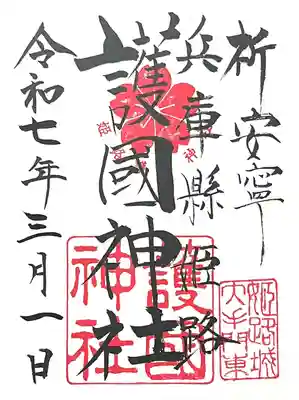 祈安寧
兵庫縣姫路
護國神社
令和七年三月一日
護國神社
姫路城大手門東